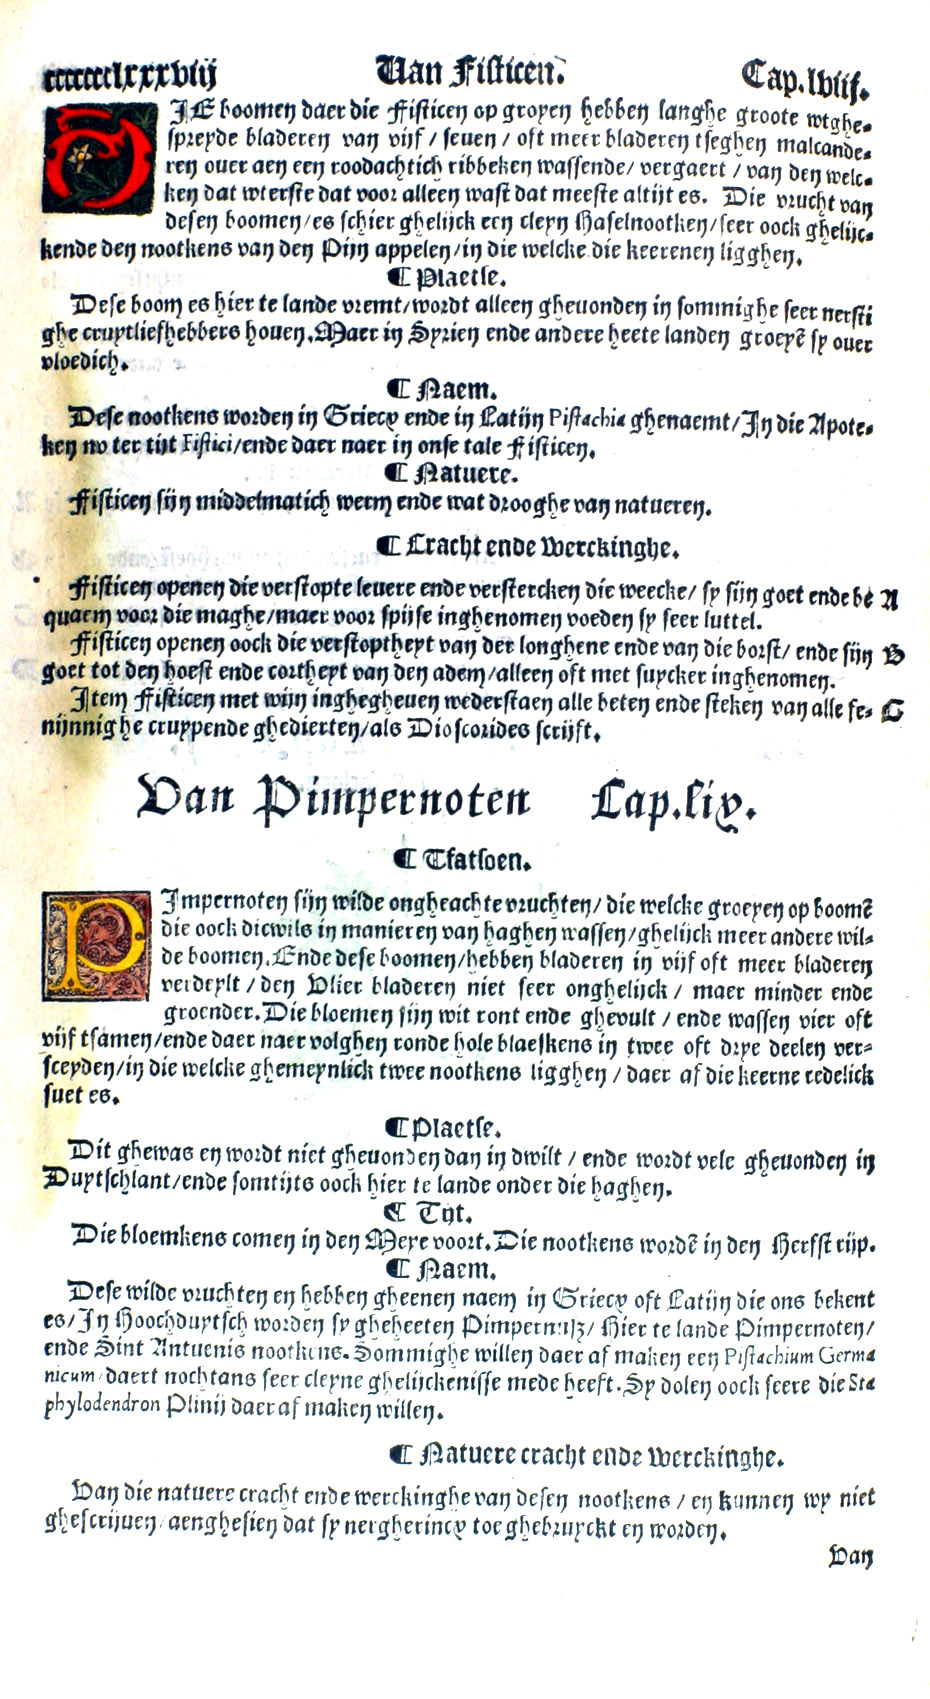 ccccccclxxxviij Van Fisticen. Cap.lviij.
DIE boomen daer die Fisticen op groyen hebben langhe groote wtghe-
spreyde bladeren van vijf / seuen / oft meer bladeren tseghen malcande-
ren ouer aen een roodachtich ribbeken wassende/ vergaert / van den welc-
ken dat wterste dat voor alleen wast dat meeste altijt es. Die vrucht van
desen boomen/es schier ghelijck een cleyn Haselnootken/seer oock ghelijc-
kende den nootkens van den Pijn appelen/in die welcke die keerenen ligghen.
¶ Plaetse.
Dese boom es hier te lande vremt/wordt alleen gheuonden in sommighe seer nersti
ghe cruytliefhebbers houen.Maer in Syrien ende andere heete landen groeyẽ sy ouer
vloedich.
¶ Naem.
Dese nootkens worden in Griecx ende in Latijn Pistachia ghenaemt/In die Apote-
ken no ter tijt Fistici/ende daer naer in onse tale Fisticen.
¶ Natuere.
Fisticen sijn middelmatich werm ende wat drooghe van natueren.
¶ Cracht ende Werckinghe.
Fisticen openen die verstopte leuere ende verstercken die weecke/ sy sijn goet ende bẽ A
quaem voor die maghe/maer voor spijse inghenomen voeden sy seer luttel.
Fisticen openen oock die verstoptheyt van der longhene ende van die borst/ ende sijn B
goet tot den hoest ende cortheyt van den adem/alleen oft met suycker inghenomen.
Item Fisticen met wijn ingheheuen wederstaen alle beten ende steken van alle fe- C
nijnnighe cruypende ghedierten/als Dioscorides scrijft.
Van Pimpernoten Cap.lix.
¶ Tfatsoen.
PImpernoten sijn wilde ongheachte vruchten/ die welcke groeyen op boomẽ
die oock dicwils in manieren van haghen wassen/ghelijck meer andere wil-
de boomen.Ende dese boomen/hebben bladeren in vijf oft meer bladeren
verdeylt / den Vlier bladeren niet seer onghelijck / maer minder ende
groender.Die bloemen sijn wit ront ende gheuult / ende wassen vier oft
vijf tsamen/ende daer naer volghen ronde hole blaeskens in twee oft drye deelen ver-
sceyden/in die welcke ghemeynlick twee nootkens ligghen / daer af die keerne redelick
suet es.
¶ Plaetse.
Dit ghewas en wordt niet gheuonden dan in dwilt / ende wordt vele gheuonden in
Duytschlant/ende somtijts oock hier te lande onder die haghen.
¶ Tijt.
Die bloemkens comen in den Meye voort.Die nootkens wordẽ in den Herfst rijp.
¶ Naem.
Dese wilde vruchten en hebben gheenen naem in Griecx oft Latijn die ons bekent
es/In Hoochduytsch worden sy gheheeten Pimpernusz/ Hier te lande Pimpernoten/
ende Sint Antuenis nootkens.Sommighe willen daer af maken een Pistachium Germa
nicum/daert nochtans seer cleyne ghelijckenisse mede heeft.Sy dolen oock seere die Sta
phylodendron Plinij daer af maken willen.
¶ Natuere cracht ende Werckinghe.
Van die natuere cracht ende werckinghe van desen nootkens / en kunnen wy niet
ghescrijuen/aenghesien dat sy nergherincx toe ghebruyckt en worden.
Van